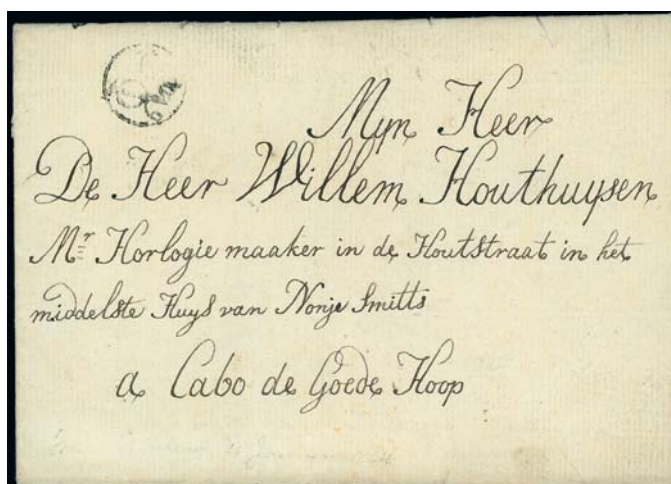 Myn Heer
De Heer Willem Houthuysen
Mr Horlogie maaker in de Houtstraat in het
middelste Huys van Nonje Smitts
a Cabo de Goede Hoop